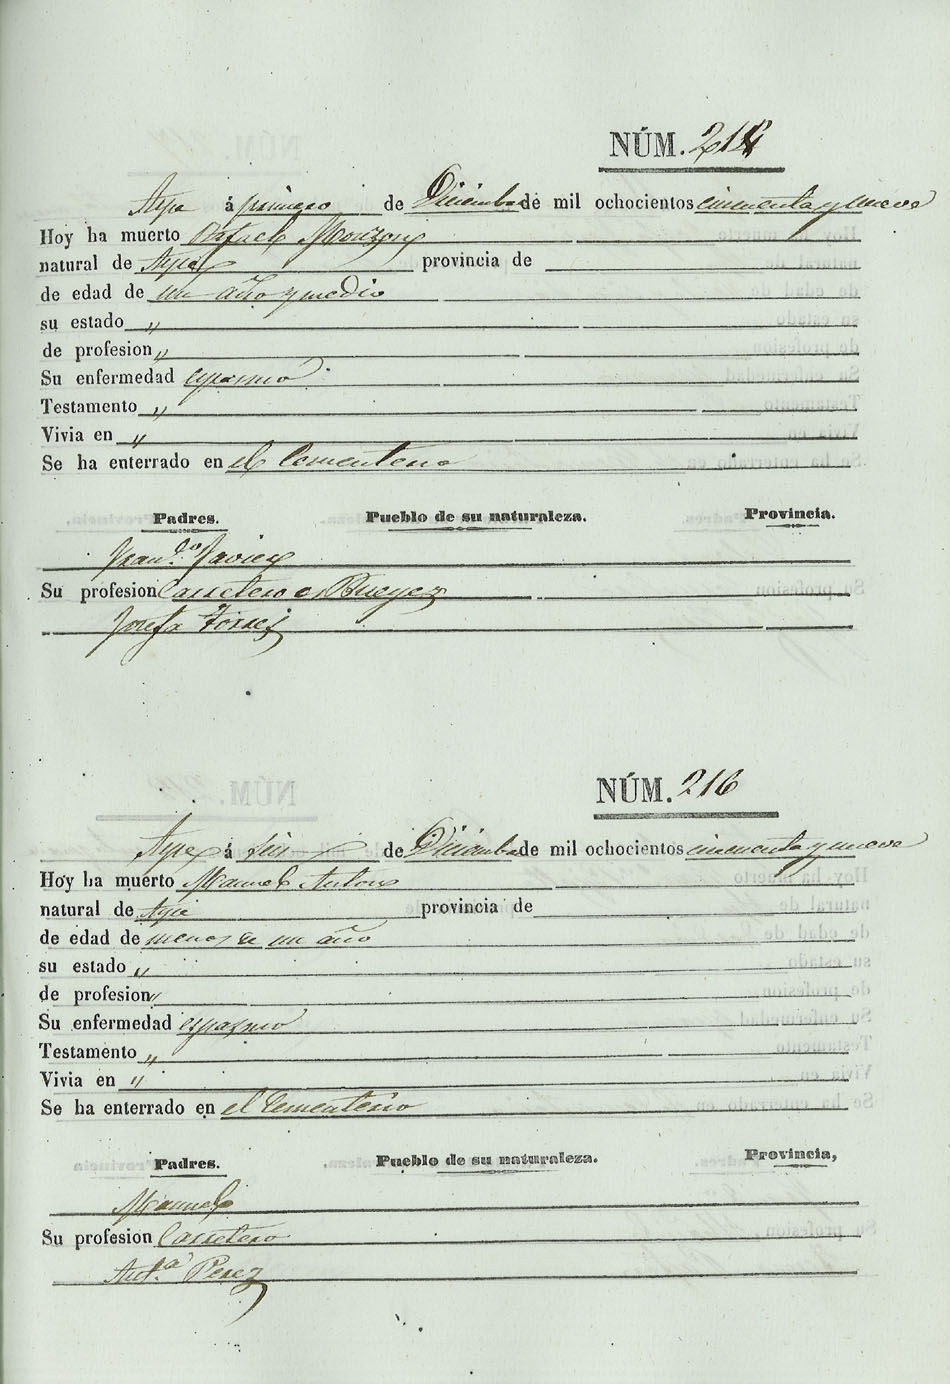 NÚM. 215
Aspe á primero de Diciembre de mil ochocientos cincuenta y nueve
Hoy ha muerto Rafael Monzon
natural de Aspe provincia de
de edad de un año y medio
su estado "
de profesion "
Su enfermedad espasmo
Testamento "
Vivia en "
Se ha enterrado en el Cementerio
Padres. Pueblo de su naturaleza. Provincia.
Javier
Su profesion Carretero de Bueyes
Josefa Torres
NÚM. 216
Aspe á seis de Diciembre de mil ochocientos cincuenta y nueve
Hoy ha muerto Manuel Anton
natural de Aspe provincia de
de edad de menos de un año
su estado "
de profesion "
Su enfermedad espasmo
Testamento "
Vivia en "
Se ha enterrado en el Cementerio
Padres. Pueblo de su naturaleza. Provincia,
Manuel
Su profesion Carretero
Ant.ª Perez